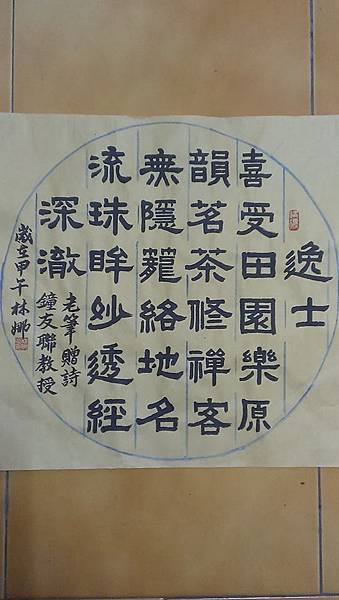 逸士
喜受田園樂原
韻茗茶修禪客
無隱籠絡地名
流珠眸妙透經
深澈
老筆贈詩
鐘友聯教授
歲在甲午林娜